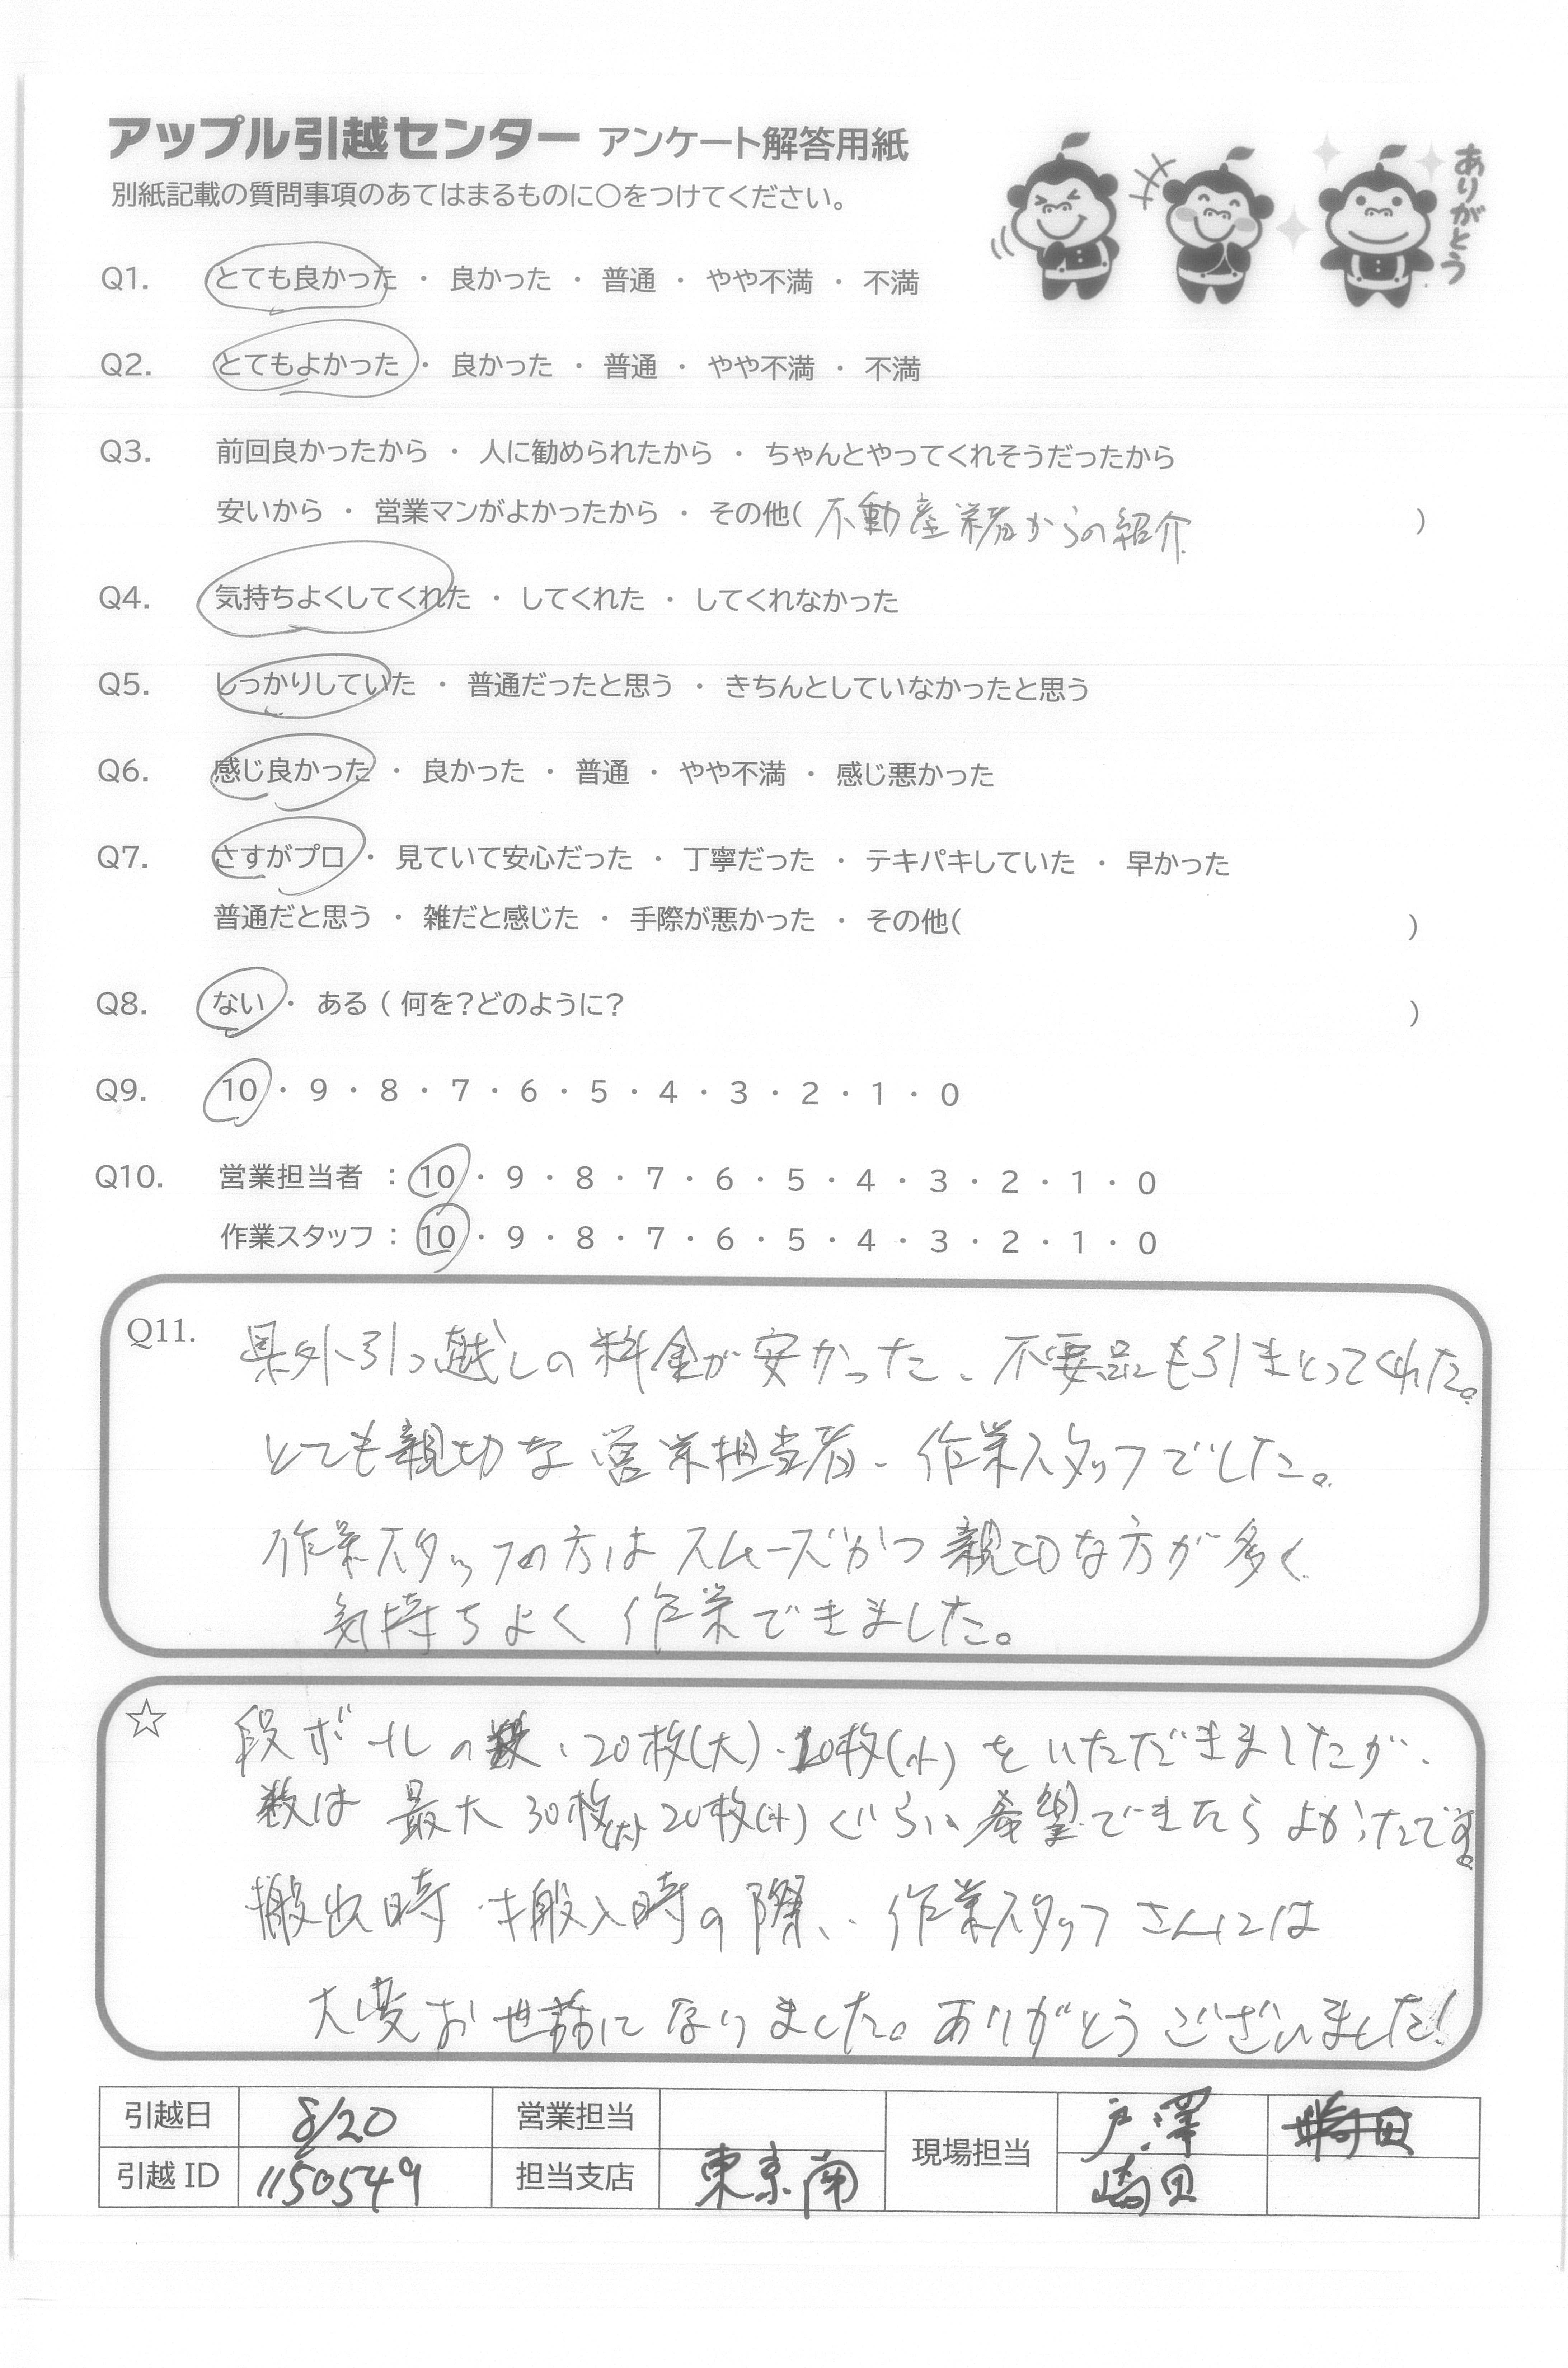 アップル引越センター アンケート解答用紙
別紙記載の質問事項のあてはまるものに○をつけてください。
ありがとう
Q1. とても良かった ・ 良かった ・ 普通 ・ やや不満 ・ 不満
Q2. とてもよかった ・ 良かった ・ 普通 ・ やや不満 ・ 不満
Q3. 前回良かったから ・ 人に勧められたから ・ ちゃんとやってくれそうだったから
安いから ・ 営業マンがよかったから ・ その他( 不動産業者からの紹介 )
Q4. 気持ちよくしてくれた ・ してくれた ・ してくれなかった
Q5. しっかりしていた ・ 普通だったと思う ・ きちんとしていなかったと思う
Q6. 感じ良かった ・ 良かった ・ 普通 ・ やや不満 ・ 感じ悪かった
Q7. さすがプロ ・ 見ていて安心だった ・ 丁寧だった ・ テキパキしていた ・ 早かった
普通だと思う ・ 雑だと感じた ・ 手際が悪かった ・ その他( )
Q8. ない ・ ある ( 何を?どのように? )
Q9. 10 ・ 9 ・ 8 ・ 7 ・ 6 ・ 5 ・ 4 ・ 3 ・ 2 ・ 1 ・ 0
Q10. 営業担当者 : 10 ・ 9 ・ 8 ・ 7 ・ 6 ・ 5 ・ 4 ・ 3 ・ 2 ・ 1 ・ 0
作業スタッフ : 10 ・ 9 ・ 8 ・ 7 ・ 6 ・ 5 ・ 4 ・ 3 ・ 2 ・ 1 ・ 0
Q11. 県外引っ越しの料金が安かった、不要品も引きとってくれた。
とても親切な営業担当者、作業スタッフでした。
作業スタッフの方はスムーズかつ親切な方が多く
気持ちよく作業できました。
☆ 段ボールの数、20枚(大)、10枚(小)をいただきましたが、
数は最大30枚(大)20枚(小)ぐらい希望できたらよかったです。
搬出時・搬入時の際、作業スタッフさんには
大変お世話になりました。ありがとうございました!
引越日 8/20 営業担当 現場担当 戸澤
引越ID 1150549 担当支店 東京南 崎田